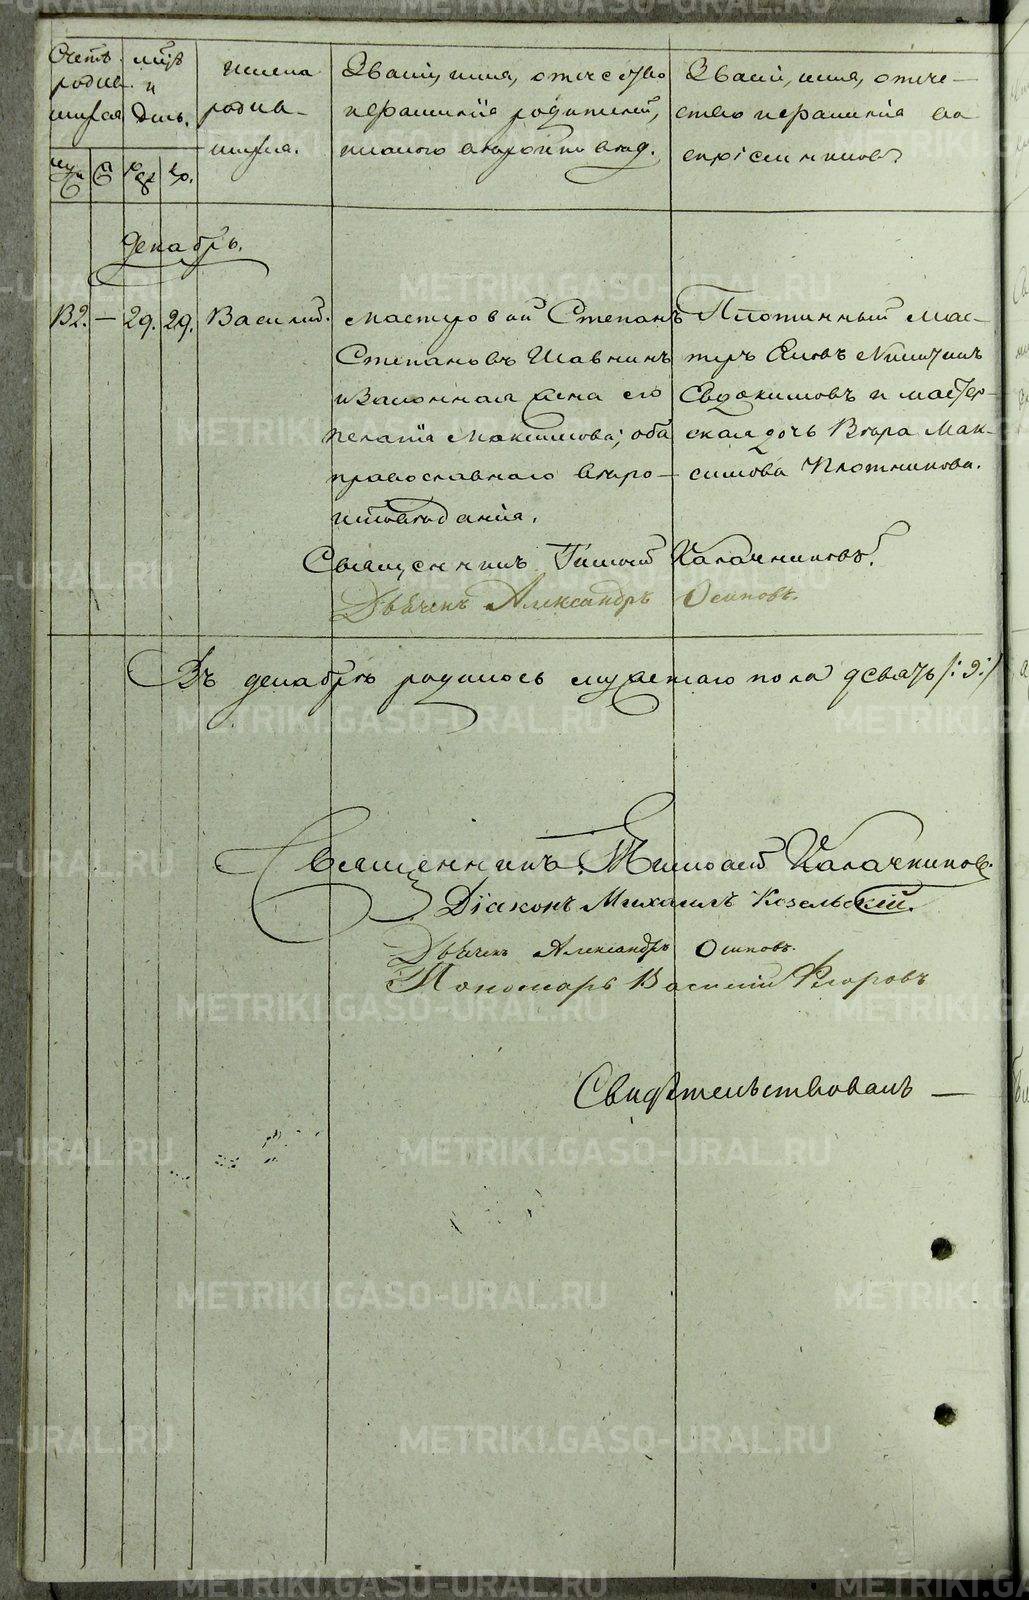 Счетъ родив-шихся
Мцъ и день.
Имена родив-шихся.
Званіе, имя, отечество
и фамилія родителей,
и какого вѣроисповѣд.
Званіе, имя, отече-
ство и фамилія во-
спріемниковъ
Декабрь.
82. — 29. 29. Василій.
Мастеровой Степанъ
Степановъ Шавнинъ
и законная жена его
Пелагія Максимова; оба
православнаго вѣро-
исповѣданія.
Плотинный мас-
теръ Яковъ Никитинъ
Евдокимовъ и мастер-
ская дочь Вѣра Мак-
симова Плотникова.
Священникъ Тимофей Калачниковъ.
Дьячекъ Александръ Осиповъ.
Въ декабрѣ родилось мужескаго пола девять /:9:/
Священникъ Тимофей Калачниковъ.
Діаконъ Михаилъ Козельскій.
Дьячекъ Александръ Осиповъ.
Пономарь Василій Флоровъ
Свидѣтельствовалъ —
METRIKI.GASO-URAL.RU